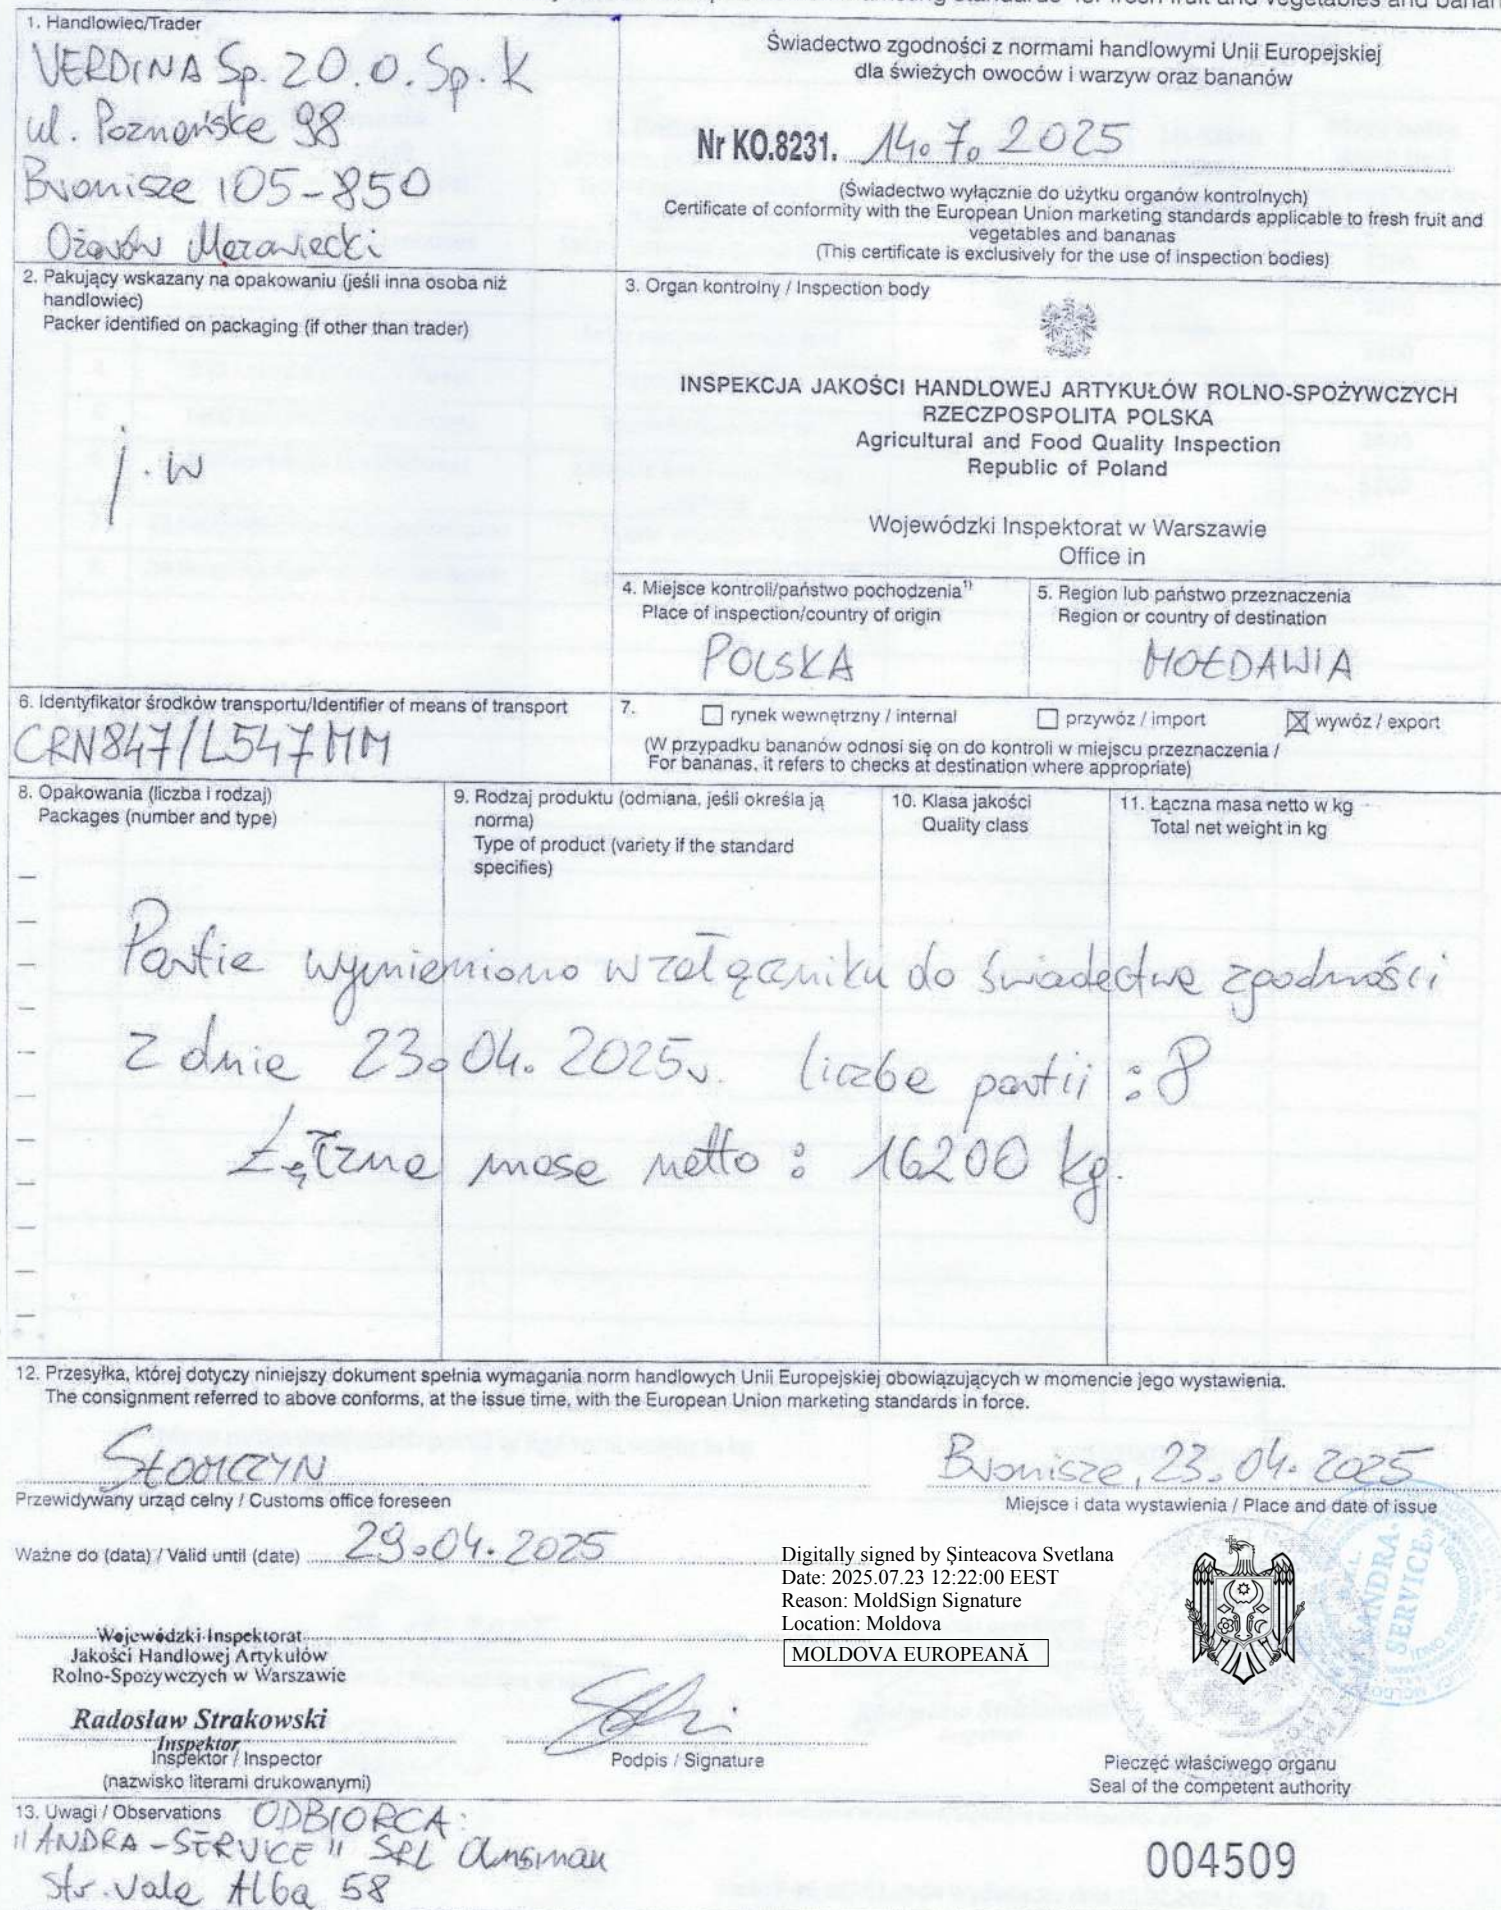 marketing standards for fresh fruit and vegetables and banan
1. Handlowiec/Trader
VERDINA Sp. z o.o. Sp. k
ul. Poznańska 98
Bronisze 105-850
Ożarów Mazowiecki
Świadectwo zgodności z normami handlowymi Unii Europejskiej
dla świeżych owoców i warzyw oraz bananów
Nr KO.8231. 14.7.2025
(Świadectwo wyłącznie do użytku organów kontrolnych)
Certificate of conformity with the European Union marketing standards applicable to fresh fruit and
vegetables and bananas
(This certificate is exclusively for the use of inspection bodies)
2. Pakujący wskazany na opakowaniu (jeśli inna osoba niż
handlowiec)
Packer identified on packaging (if other than trader)
j.w
3. Organ kontrolny / Inspection body
INSPEKCJA JAKOŚCI HANDLOWEJ ARTYKUŁÓW ROLNO-SPOŻYWCZYCH
RZECZPOSPOLITA POLSKA
Agricultural and Food Quality Inspection
Republic of Poland
Wojewódzki Inspektorat w Warszawie
Office in
4. Miejsce kontroli/państwo pochodzenia¹⁾
Place of inspection/country of origin
POLSKA
5. Region lub państwo przeznaczenia
Region or country of destination
MOŁDAWIA
6. Identyfikator środków transportu/Identifier of means of transport
CRN847/L547MM
7. rynek wewnętrzny / internal przywóz / import wywóz / export
(W przypadku bananów odnosi się on do kontroli w miejscu przeznaczenia /
For bananas, it refers to checks at destination where appropriate)
8. Opakowania (liczba i rodzaj)
Packages (number and type)
9. Rodzaj produktu (odmiana, jeśli określa ją
norma)
Type of product (variety if the standard
specifies)
10. Klasa jakości
Quality class
11. Łączna masa netto w kg
Total net weight in kg
Partie wymieniono w załączniku do świadectwa zgodności
z dnia 23.04.2025r. liczba partii : 8
Łączna masa netto : 16200 kg.
12. Przesyłka, której dotyczy niniejszy dokument spełnia wymagania norm handlowych Unii Europejskiej obowiązujących w momencie jego wystawienia.
The consignment referred to above conforms, at the issue time, with the European Union marketing standards in force.
SŁOMCZYN
Przewidywany urząd celny / Customs office foreseen
Bronisze, 23.04.2025
Miejsce i data wystawienia / Place and date of issue
Ważne do (data) / Valid until (date) 29.04.2025
Digitally signed by Şinteacova Svetlana
Date: 2025.07.23 12:22:00 EEST
Reason: MoldSign Signature
Location: Moldova
MOLDOVA EUROPEANĂ
ANDRA-
SERVICE
Wojewódzki Inspektorat
Jakości Handlowej Artykułów
Rolno-Spożywczych w Warszawie
Radosław Strakowski
Inspektor
Inspektor / Inspector
(nazwisko literami drukowanymi)
Podpis / Signature
Pieczęć właściwego organu
Seal of the competent authority
13. Uwagi / Observations ODBIORCA:
"ANDRA-SERVICE" SRL
Str. Vale Alba 58
004509